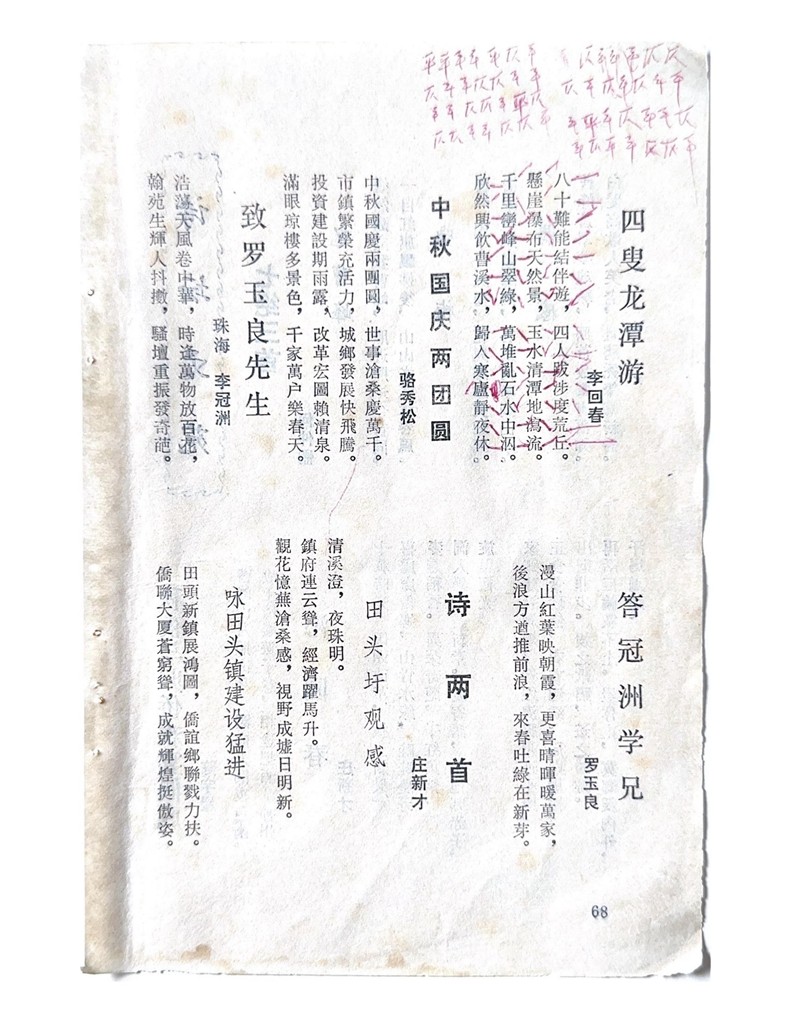 四叟龙潭游
李回春
八十難能結伴遊，四人跋涉度荒丘。
懸崖瀑布天然景，玉水清潭地瀉流。
千里巒峰山翠綠，萬堆亂石水中泅。
欣然興飲曹溪水，歸入寒廬靜夜休。
中秋国庆两团圆
骆秀松
中秋國慶兩團圓，世事滄桑慶萬千。
市鎮繁榮充活力，城鄉發展快飛騰。
投資建設期雨露，改革宏圖賴清泉。
滿眼琼樓多景色，千家萬户樂春天。
致罗玉良先生
珠海 李冠洲
浩蕩天風卷中華，時逢萬物放百花，
翰苑生輝人抖擻，騷壇重振發奇葩。
答冠洲学兄
罗玉良
漫山紅葉映朝霞，更喜晴暉暖萬家，
後浪方遒推前浪，來春吐綠在新芽。
诗两首
庄新才
田头圩观感
清溪澄，夜珠明。
鎮府連云聳，經濟躍馬升。
觀花憶蕪滄桑感，視野成墟日明新。
咏田头镇建设猛进
田頭新鎮展鴻圖，僑誼鄉聯戮力扶。
僑聯大厦蒼窮聳，成就輝煌挺傲姿。
68